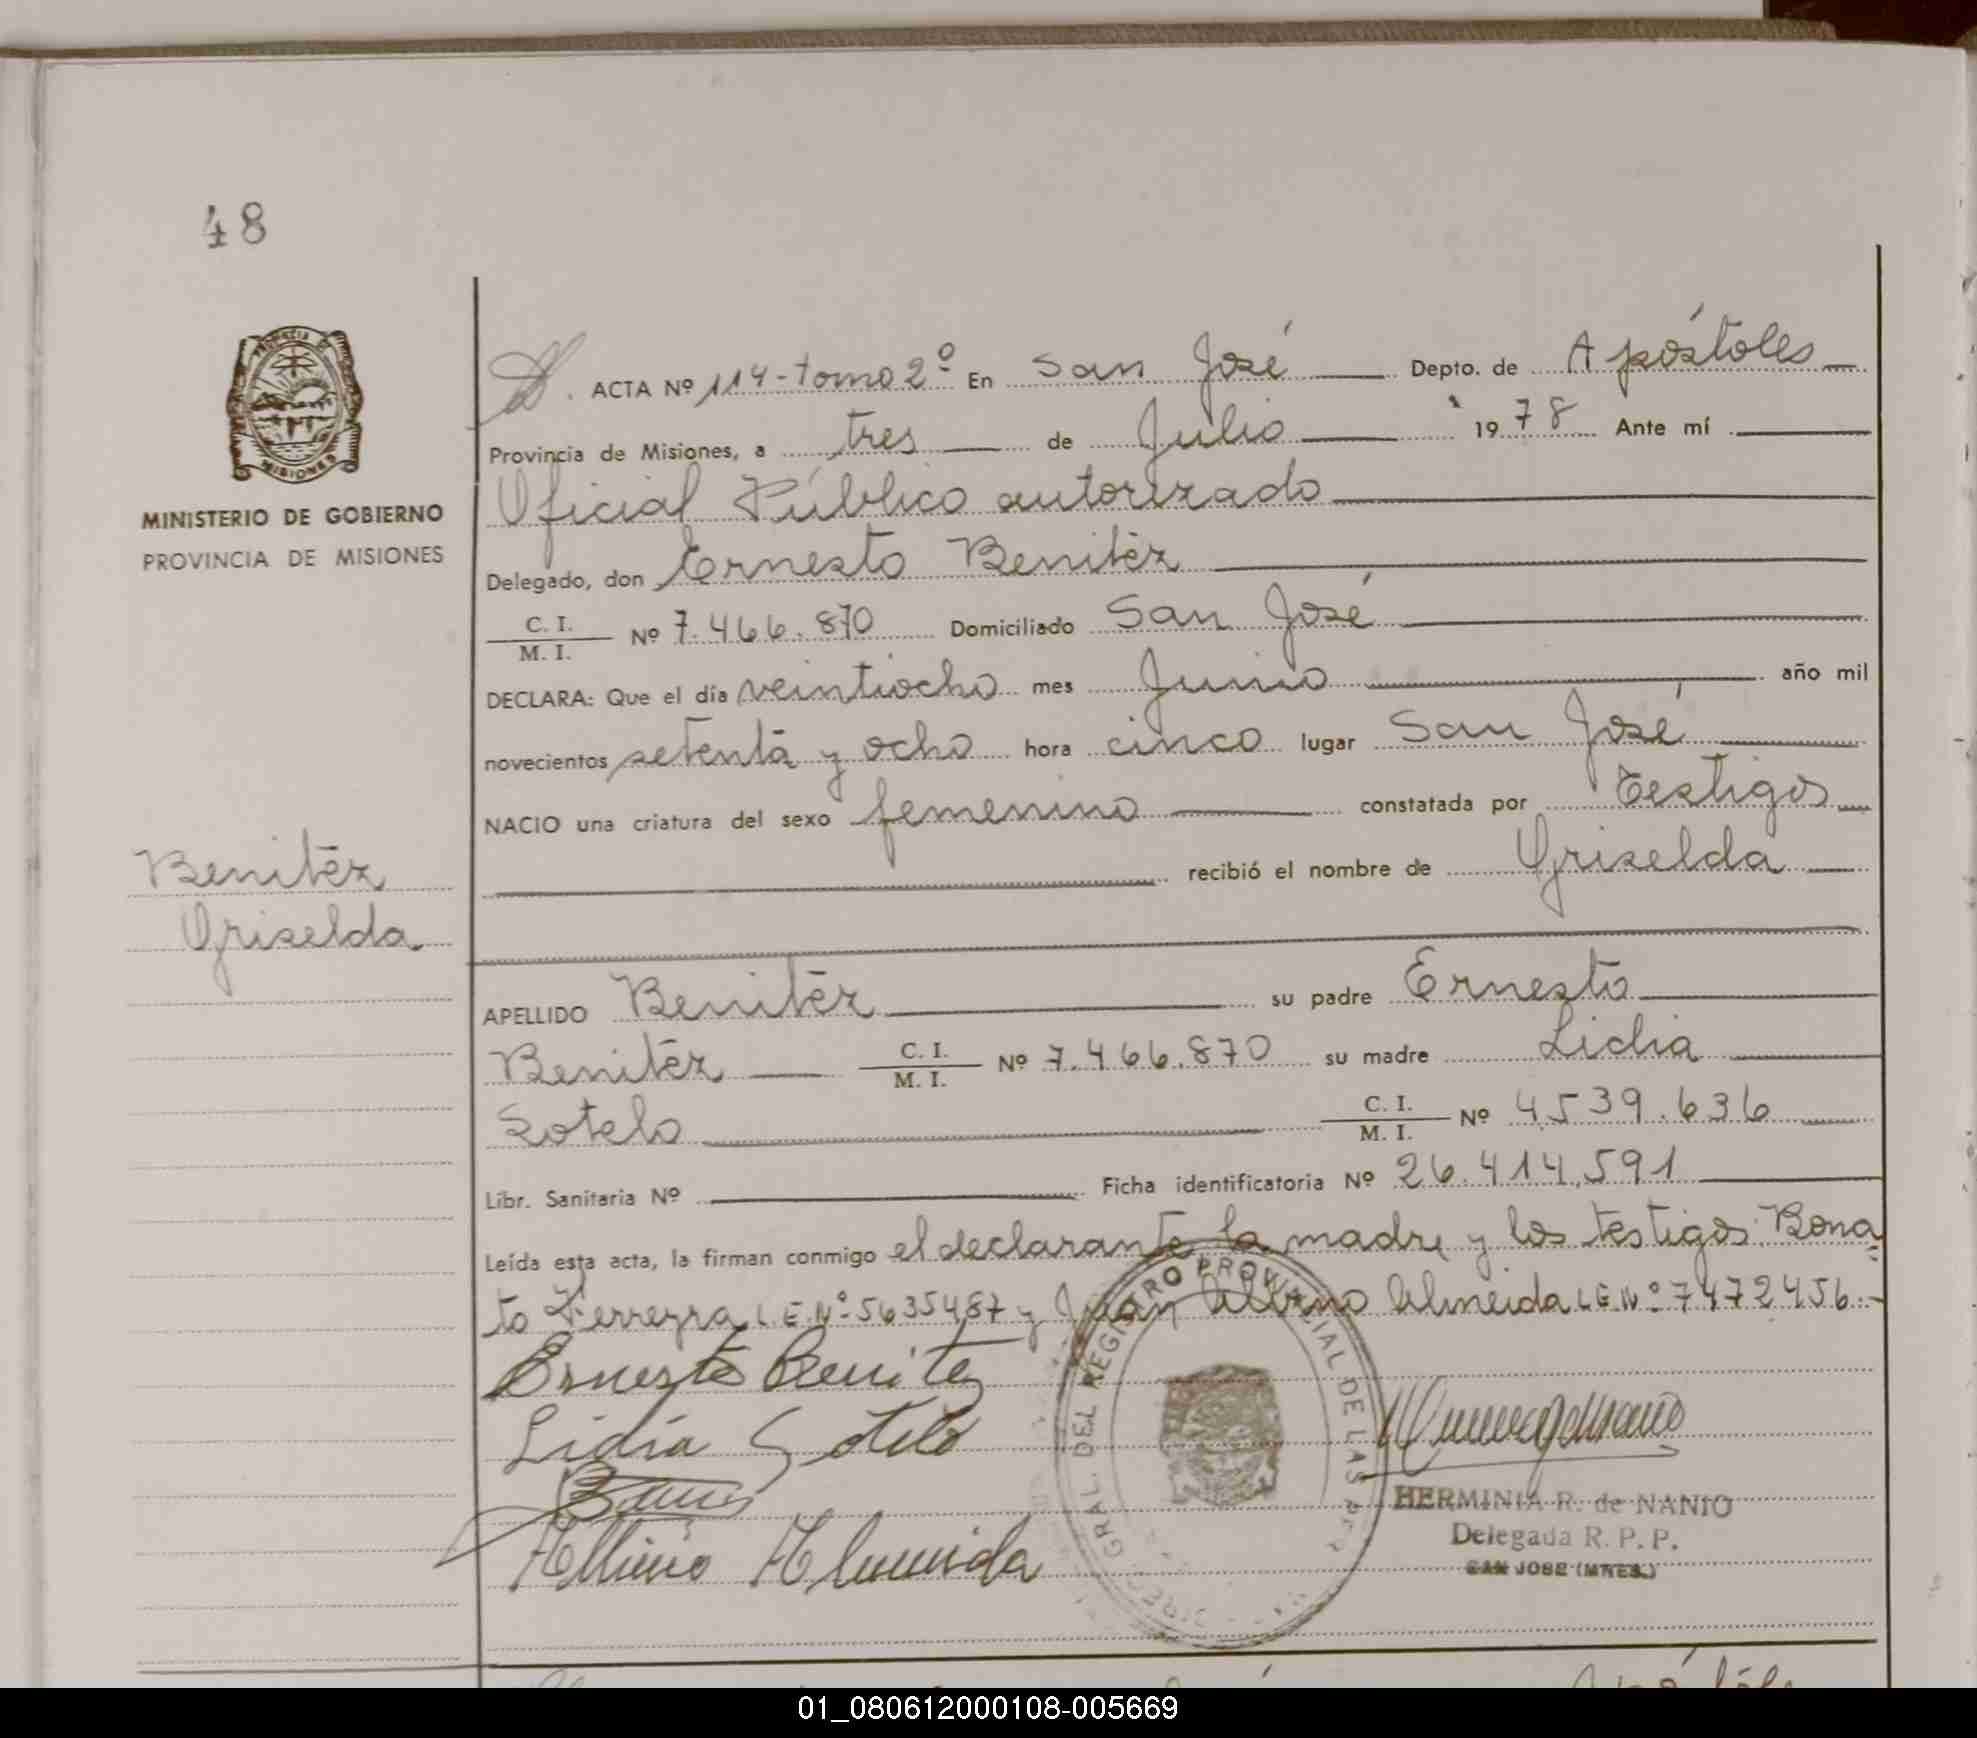 48
MINISTERIO DE GOBIERNO
PROVINCIA DE MISIONES
ACTA Nº 114-tomo 2º En San José Depto. de Apóstoles
Provincia de Misiones, a tres de Julio 1978 Ante mí
Oficial Público autorizado
Delegado, don Ernesto Benitéz
C. I.
M. I. Nº 7.466.870 Domiciliado San José
DECLARA: Que el día veintiocho mes Junio año mil
novecientos setenta y ocho hora cinco lugar San José
NACIO una criatura del sexo femenino constatada por Testigos
recibió el nombre de Griselda
Benitéz
Griselda
APELLIDO Benitéz su padre Ernesto
Benitéz C. I. M. I. Nº 7.466.870 su madre Lidia
Sotelo C. I. M. I. Nº 4.539.636
Libr. Sanitaria Nº Ficha identificatoria Nº 26.414.591
Leída esta acta, la firman conmigo el declarante, la madre y los testigos: Bona=
to Ferreyra L.E.Nº 5635487 y Juan Albino Almeida L.E.Nº 7472456.-
Ernesto Benitez
Lidia Sotelo
Albino Almeida
GRAL. DEL REGISTRO PROVINCIAL DE LAS PER
HERMINIA R. de NANIO
Delegada R. P. P.
SAN JOSE (MNES.)
01_080612000108-005669